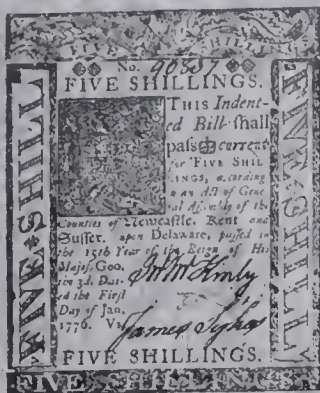 FIVE SHILL
No. 90837
FIVE SHILLINGS.
THIS Indent-
ed Bill shall
pass current
for FIVE SHIL
LINGS, according
to an Act of Gene
ral Assembly of the
Counties of Newcastle. Kent and
Sussex. upon Delaware, passed in
the 15th Year of the Reign of His
Majes. Geo.
the 3d. Dat-
ed the First
Day of Jan.
1776.
James
FIVE SHILLINGS.
FIVE SHILLINGS
FIVE SHILL
FIVE SHILL